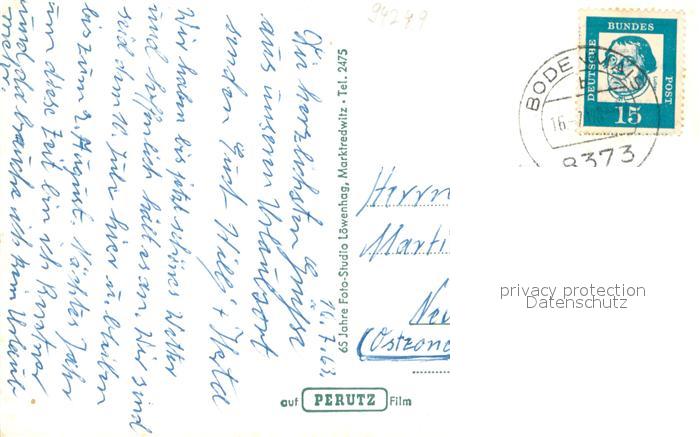 94289
16.7.63.
Die herzlichsten Grüsse
aus unserem Urlaubsort
senden Euch Willi + Herta
Wir haben bis jetzt schönes Wetter
und hoffentlich hält es an. Wir sind
seit dem 10. Juli hier u. bleiben
bis zum 2. August. Nächstes Jahr
um diese Zeit bin ich Rentner
und da brauche ich kein Urlaub
mehr.
65 Jahre Foto-Studio Löwenhag, Marktredwitz • Tel. 2475
auf PERUTZ Film
DEUTSCHE BUNDES POST
15
BODENMAIS
16.-7.
8373
Herrn
Marti
Neu
(Ostzone
privacy protection
Datenschutz